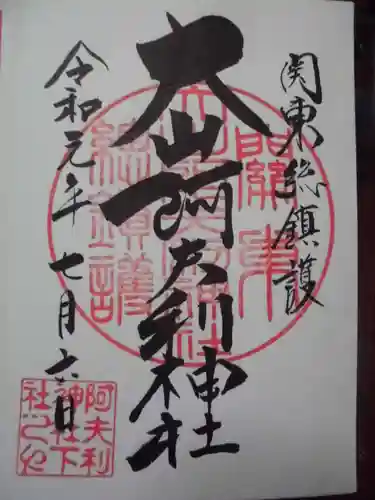 関東総鎮護
大山阿夫利神社
令和元年七月六日
阿夫利
神社下
社